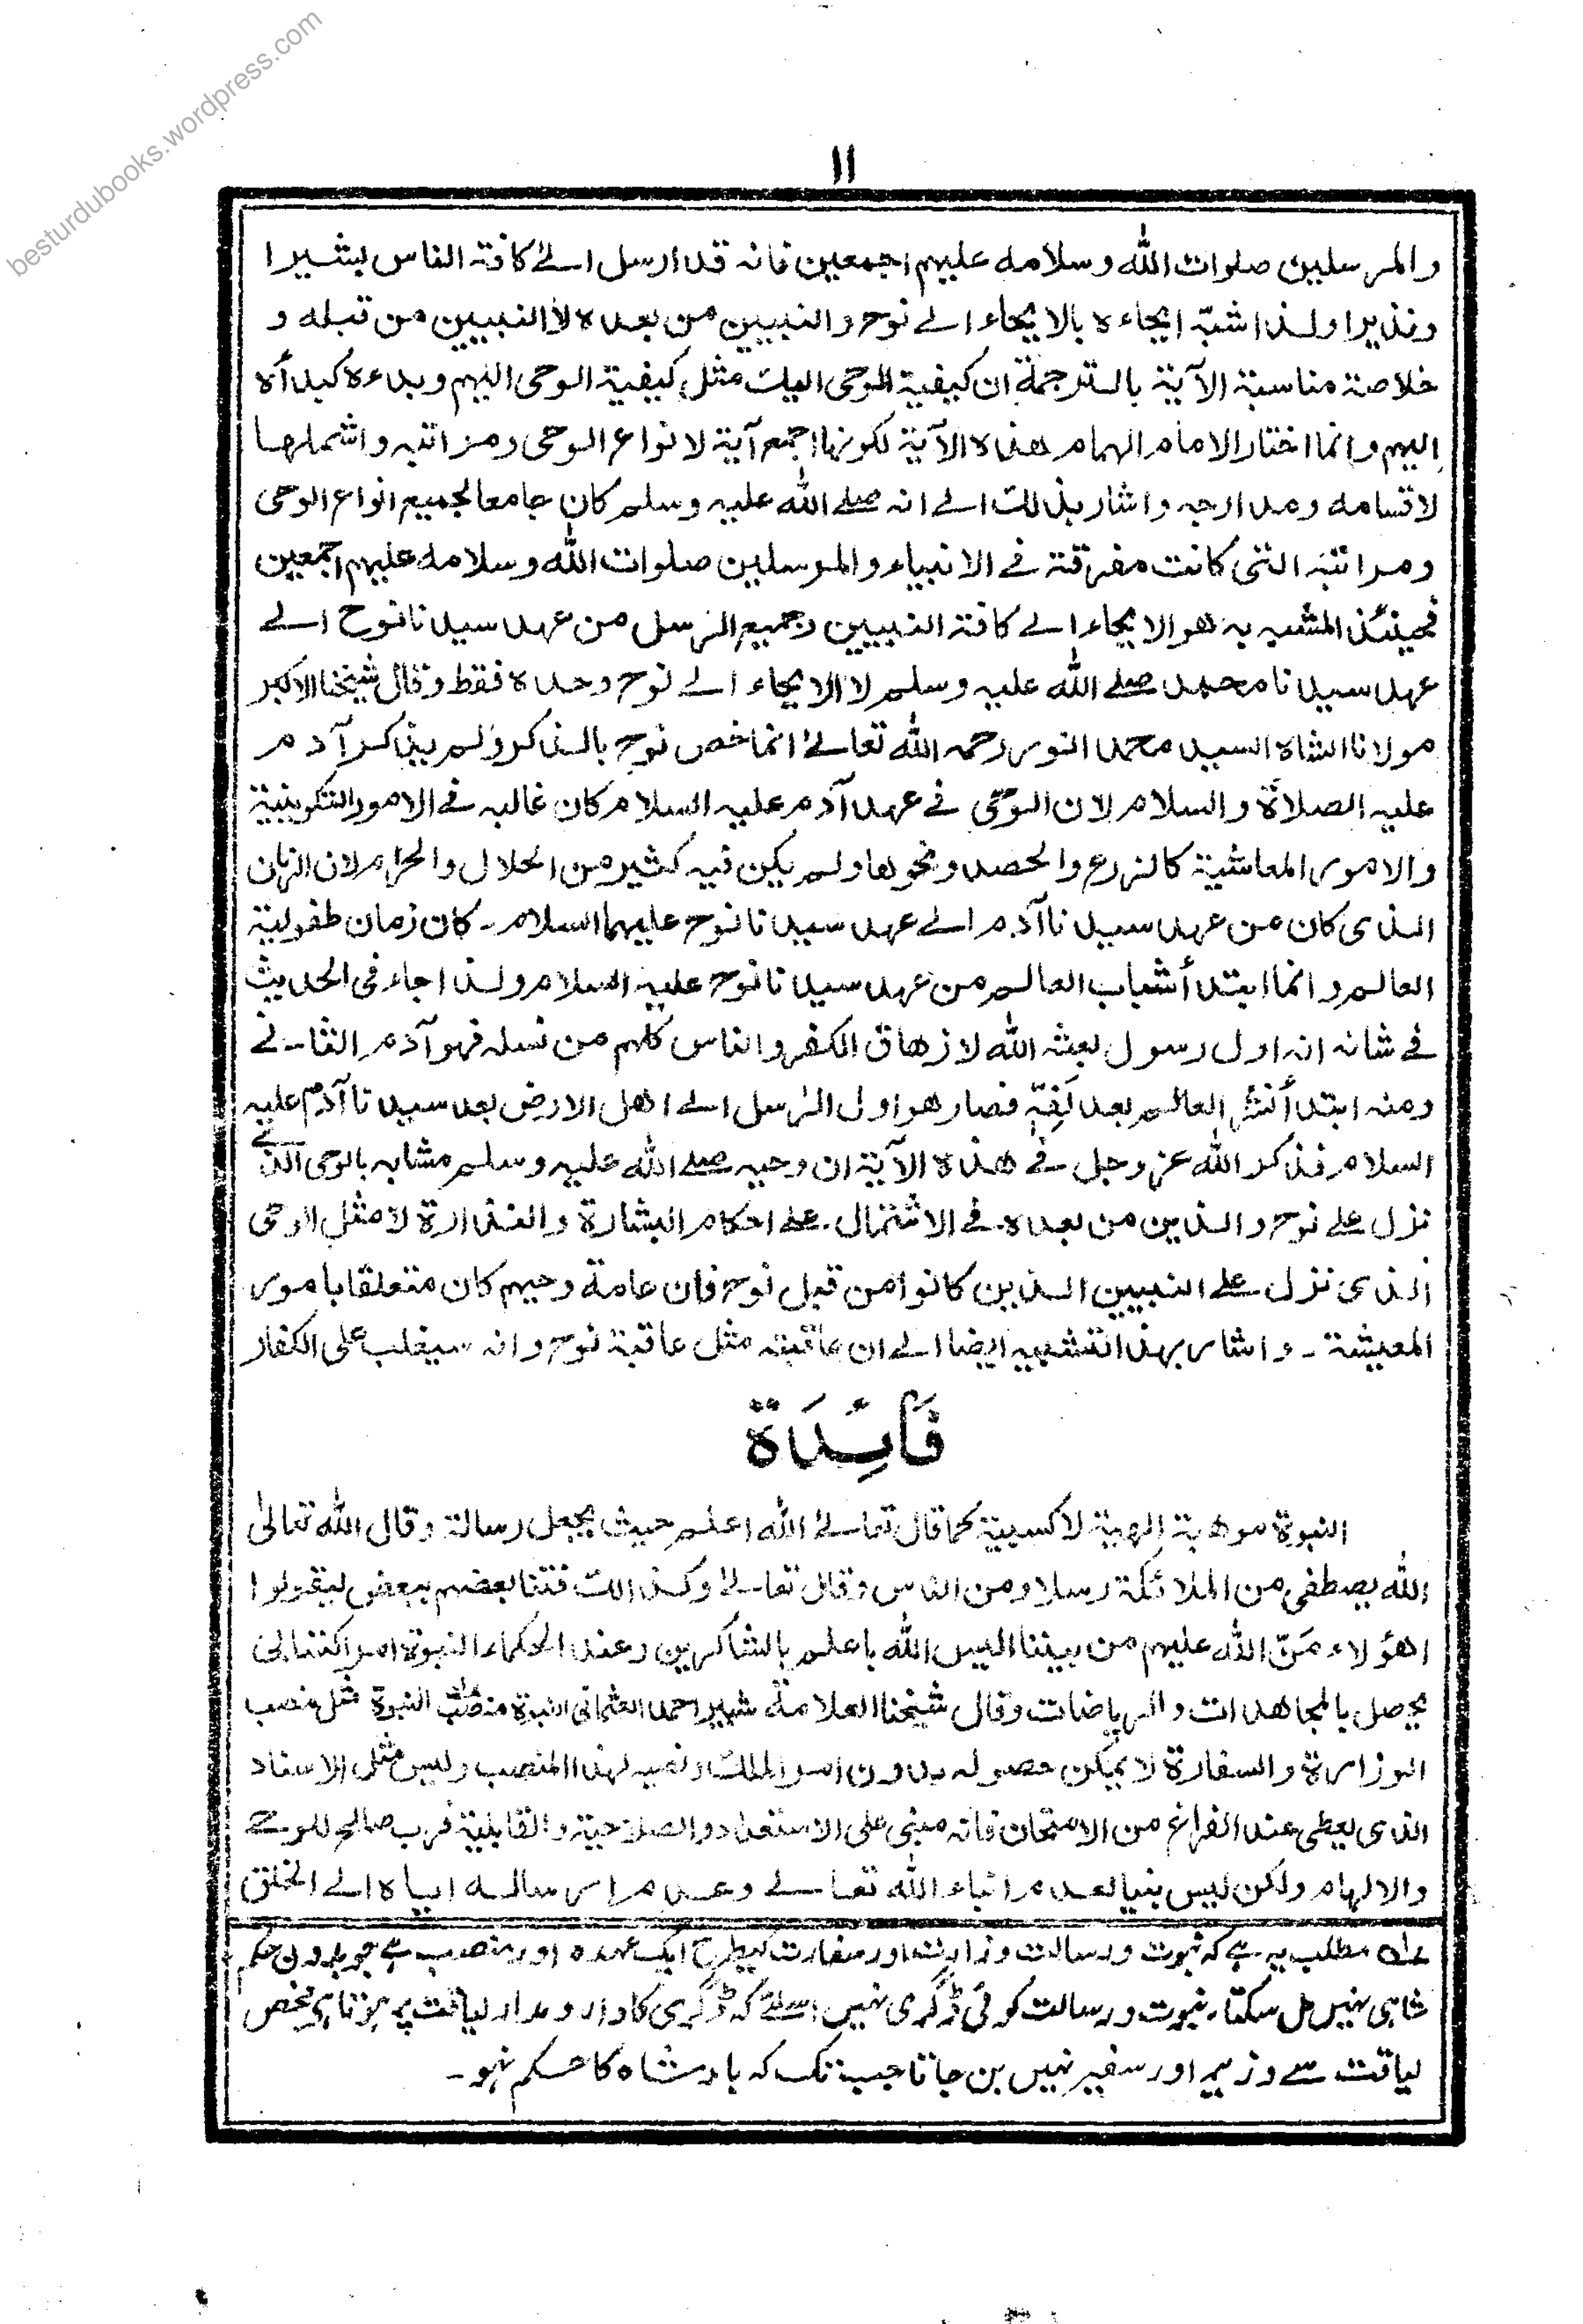 besturdubooks.wordpress.com
١١
والمرسلين صلوات الله وسلامه عليهم اجمعين فانه قد ارسل الىٰ كافة الناس بشيرا
ونذيرا ولذا شبّه ايحاءه بالايحاء الى نوح والنبيين من بعده لا النبيين من قبله و
خلاصة مناسبة الآية بالترجمة ان كيفية الوحى اليك مثل كيفية الوحى اليهم وبدءه كبدأه
اليهم وانما اختار الامام الهمام هذه الآية لكونها اجمع آية لانواع الوحى ومراتبه واشملها
لاقسامه ومدارجه واشار بذلك الى انه صلى الله عليه وسلم كان جامعا لجميع انواع الوحى
ومراتبه التى كانت مفرقة فى الانبياء والمرسلين صلوات الله وسلامه عليهم اجمعين
فحينئذ المشبه به هو الايحاء الى كافة النبيين وجميع الرسل من عهد سيدنا نوح الى
عهد سيدنا محمد صلى الله عليه وسلم لا الايحاء الى نوح وحده فقط وقال شيخنا الاكبر
مولانا الشاه السيد محمد انور رحمه الله تعالىٰ انما خص نوح بالذكر ولم يذكر آدم
عليه الصلاة والسلام لان الوحى فى عهد آدم عليه السلام كان غالبه فى الامور التكوينية
والامور المعاشية كالزرع والحصد ونحوها ولم يكن فيه كثير من الحلال والحرام لان الزمان
الذى كان من عهد سيدنا آدم الى عهد سيدنا نوح عليهما السلام ۔ كان زمان طفولية
العالم وانما ابتدأ شباب العالم من عهد سيدنا نوح عليه السلام ولذا جاء فى الحديث
فى شانه انه اول رسول بعثه الله لازهاق الكفر والناس كلهم من نسله فهو آدم الثانى
ومنه ابتدأ نشر العالم بعد لَفِّهٖ فصار هو اول الرسل الى اهل الارض بعد سيدنا آدم عليه
السلام فذكر الله عز وجل فى هذه الآية ان وحيه صلى الله عليه وسلم مشابه بالوحى الذى
نزل على نوح والذين من بعده فى الاشتمال على احكام البشارة والنذارة لا مثل الوحى
الذى نزل على النبيين الذين كانوا من قبل نوح فان عامة وحيهم كان متعلقا بامور
المعيشة ۔ واشار بهذا التشبيه ايضا الى ان عاقبته مثل عاقبة نوح وانه سيغلب على الكفار
فَائِدَة
النبوة موهبة الهية لا كسبية كما قال تعالىٰ الله اعلم حيث يجعل رسالته وقال الله تعالىٰ
الله يصطفى من الملائكة رسلا ومن الناس وقال تعالىٰ وكذالك فتنا بعضهم ببعض ليقولوا
اهؤلاء مَنَّ الله عليهم من بيننا اليس الله باعلم بالشاكرين وعند الحكماء النبوة امر اكتسابى
يحصل بالمجاهدات والرياضات وقال شيخنا العلامة شبير احمد العثمانى النبوة منصب النبوة مثل منصب
الوزارة والسفارة لا يمكن حصوله بدون امر الملك ونصبه لهذا المنصب وليس مثل الاسناد
الذى يعطى عند الفراغ من الامتحان فانه مبنى على الاستعداد والصلاحية والقابلية فرب صالح للوحى
والالهام ولكن ليس بنبيا لعدم انباء الله تعالى وعدم ارساله اياه الى الخلق
مطلب یہ ہے کہ نبوت ورسالت وزارت اور سفارت کیطرح ایک عہدہ اور منصب ہے جو بدون حکم
شاہی نہیں مل سکتا، نبوت ورسالت کوئی ڈگری نہیں اسلئے کہ ڈگری کا دار ومدار لیاقت پر ہوتا ہے محض
لیاقت سے وزیر اور سفیر نہیں بن جاتا جب تک کہ بادشاہ کا حکم نہو ۔